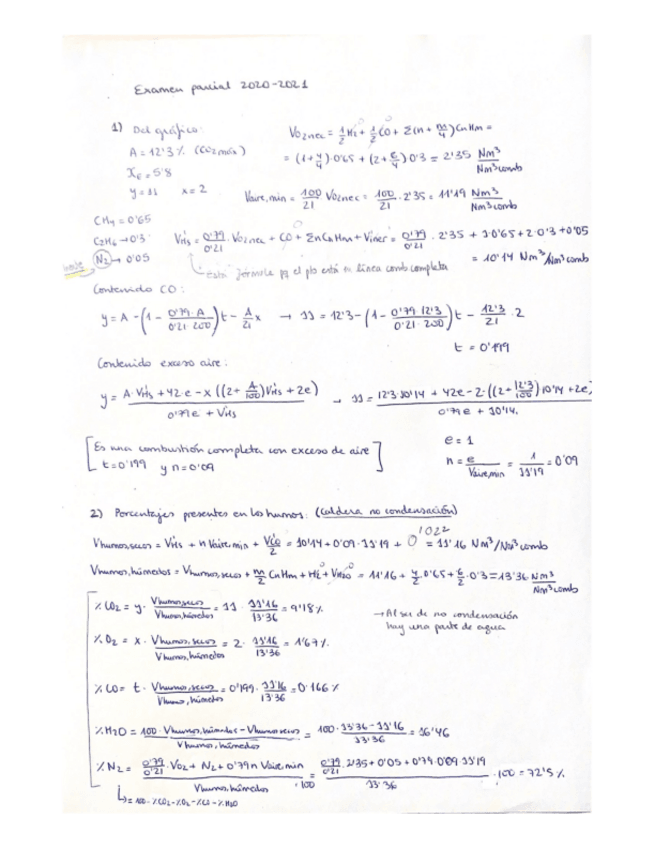 Examen parcial 2020-2021
1) Del gráfico:
A = 12'3 % (CO2 máx)
X0 = 5'8
y = 11 x = 2
VO2nec = 1/2 H2 + 1/2 CO + Σ(n + m/4) CnHm =
= (1 + 4/4)·0'65 + (2 + 6/4) 0'3 = 2'35 Nm³/Nm³comb
Vaire,min = 100/21 VO2nec = 100/21 · 2'35 = 11'19 Nm³/Nm³comb
CH4 = 0'65
C2H6 → 0'3
N2 → 0'05
VHs = 0'79/0'21 · VO2nec + CO + ΣnCnHm + Viner = 0'79/0'21 · 2'35 + 1·0'65 + 2·0'3 + 0'05
= 10'14 Nm³/Nm³comb
Esta fórmula pq el pto está en línea comb completa
Contenido CO:
y = A - (1 - 0'79·A/0'21·200) t - A/21 x → 11 = 12'3 - (1 - 0'79·12'3/0'21·200) t - 12'3/21 · 2
t = 0'199
Contenido exceso aire:
y = A·VHs + 42·e - x((2 + A/100)VHs + 2e) / 0'79e + VHs → 11 = 12'3·10'14 + 42e - 2·((2 + 12'3/100) 10'14 + 2e) / 0'79e + 10'14.
e = 1
[Es una combustión completa con exceso de aire
t = 0'199 y n = 0'09]
n = e/Vaire,min = 1/11'19 = 0'09
2) Porcentajes presentes en los humos: (caldera no condensación)
Vhumos,secos = VHs + n Vaire min + VCO/2 = 10'14 + 0'09·11'19 + 0'022 = 11'16 Nm³/Nm³comb
Vhumos,húmedos = Vhumos,secos + m/2 CnHm + H2 + VH2O = 11'16 + 4/2·0'65 + 6/2·0'3 = 13'36 Nm³/Nm³comb
% CO2 = y · Vhumos,secos/Vhumos,húmedos = 11 · 11'16/13'36 = 9'18 %
→ Al ser de no condensación
hay una parte de agua
% O2 = x · Vhumos,secos/Vhumos,húmedos = 2 · 11'16/13'36 = 1'67 %
% CO = t · Vhumos,secos/Vhumos,húmedos = 0'199 · 11'16/13'36 = 0'166 %
% H2O = 100 · Vhumos,húmedos - Vhumos secos / Vhumos,húmedos = 100 · 13'36 - 11'16 / 13'36 = 16'46
% N2 = 0'79/0'21 · VO2 + N2 + 0'79 n Vaire,min / Vhumos,húmedos · 100 = 0'79/0'21 · 2'35 + 0'05 + 0'79·0'09·11'19 / 13'36 · 100 = 72'5 %
↳ = 100 - % CO2 - % O2 - % CO - % H2O